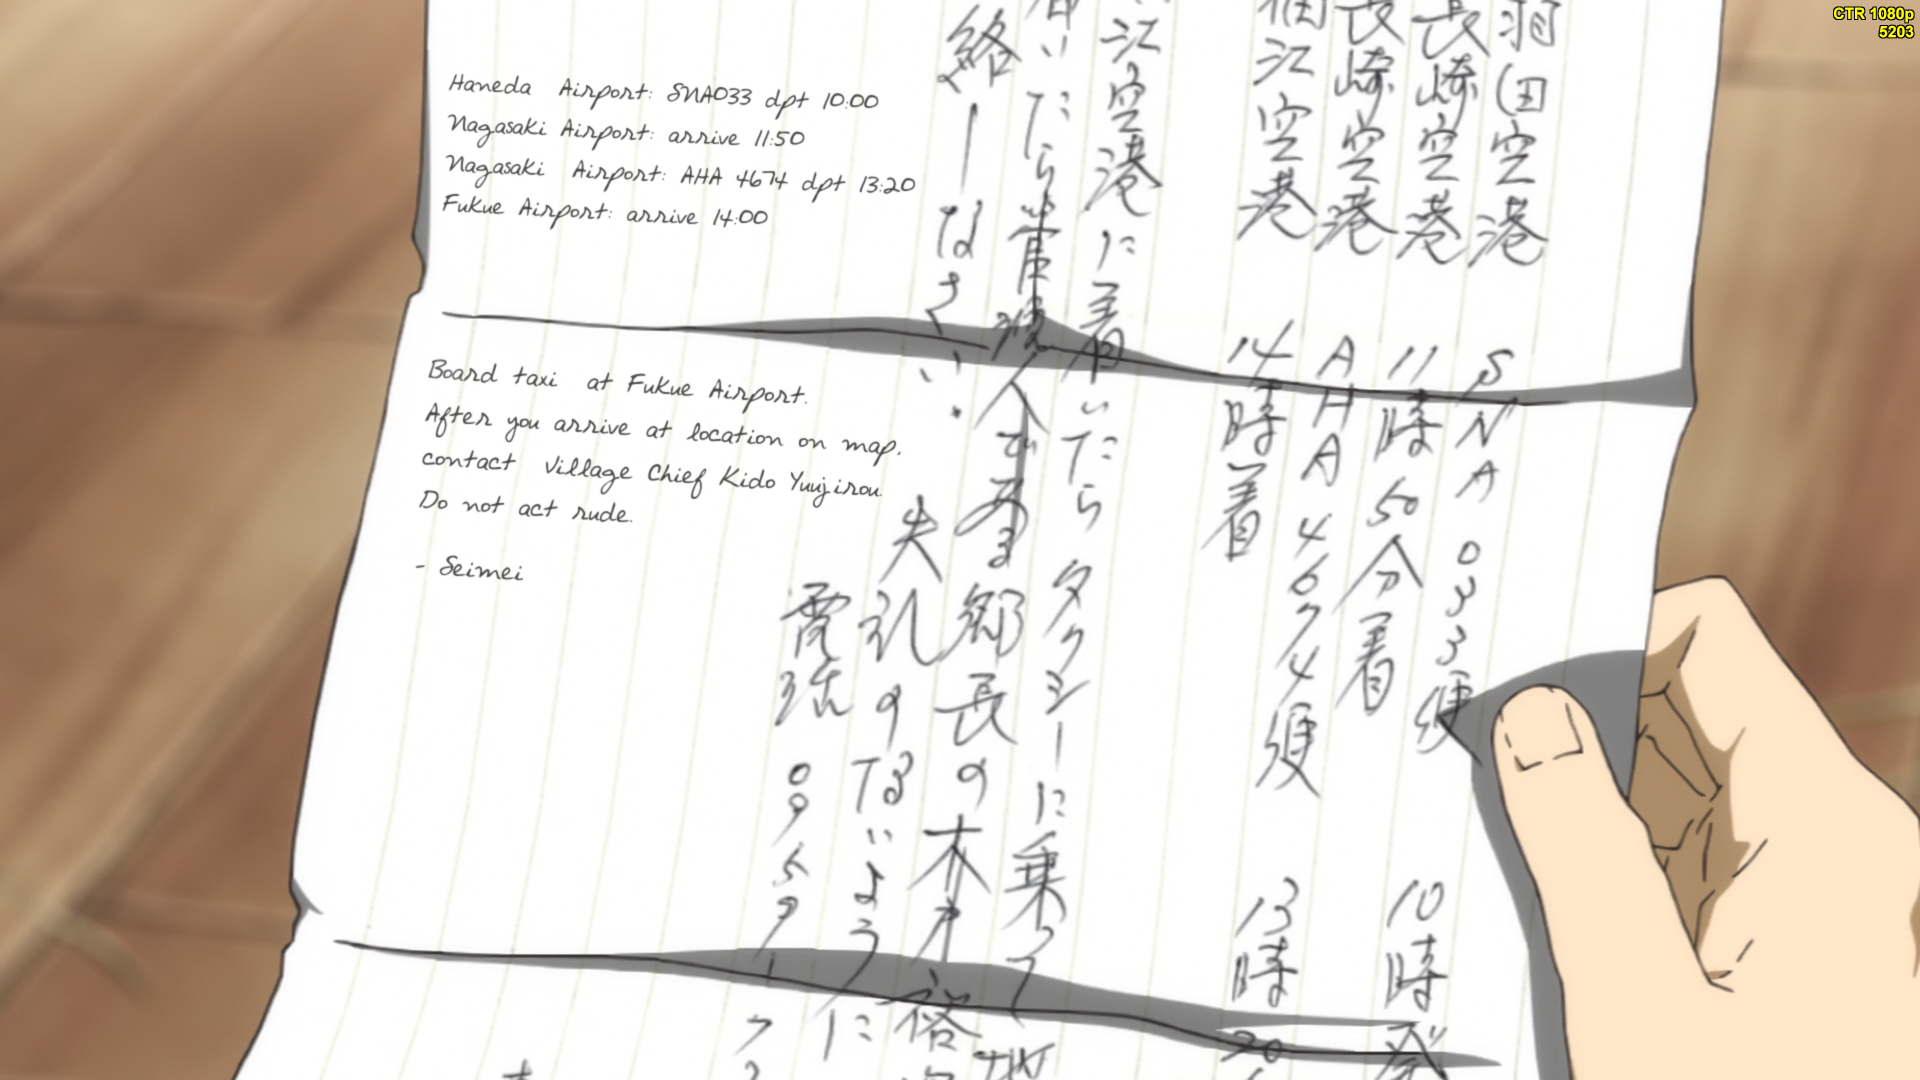 CTR 1080p
5203
Haneda Airport: SNA033 dpt 10:00
Nagasaki Airport: arrive 11:50
Nagasaki Airport: AHA 4674 dpt 13:20
Fukue Airport: arrive 14:00
Board taxi at Fukue Airport.
After you arrive at location on map,
contact Village Chief Kido Yuujirou.
Do not act rude.
- Seimei
羽田空港 SNA033便 10時発
長崎空港 11時50分着
長崎空港 AHA4674便 13時20
福江空港 14時着
江空港に着いたらタクシーに乗って
着いたら管理人である郷長の木戸裕
絡しなさい. 失礼のないように
電話 0959